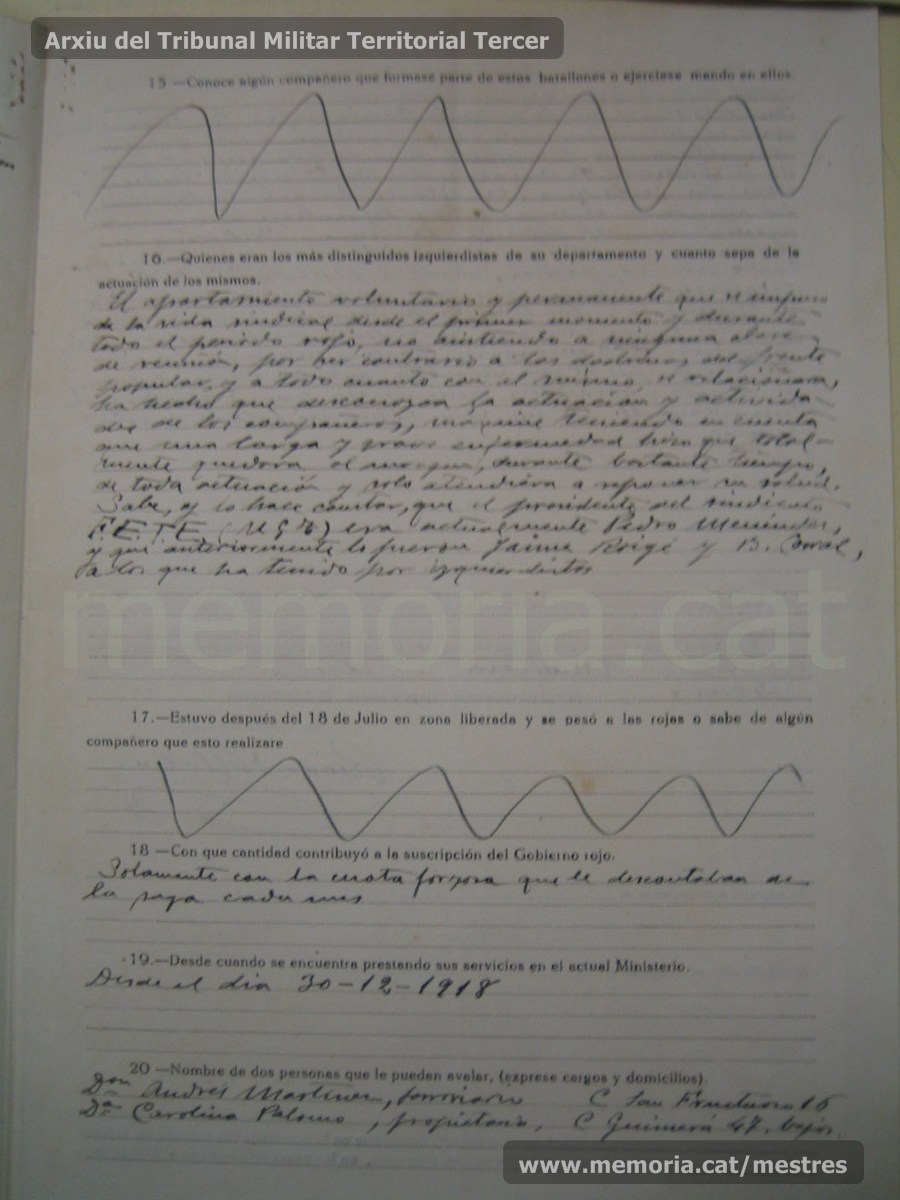 Arxiu del Tribunal Militar Territorial Tercer
15 —Conoce algún compañero que formase parte de estos batallones o ejerciese mando en ellos.
16.—Quienes eran los más distinguidos izquierdistas de su departamento y cuanto sepa de la
actuación de los mismos.
El apartamiento voluntario y permanente que se impuso
de la vida sindical desde el primer momento y durante
todo el periodo rojo, no asistiendo a ninguna clase
de reunión, por ser contrario a las doctrinas del frente
popular, y a todo cuanto con el mismo se relacionara,
ha hecho que desconozca la actuación y activida-
des de los compañeros, máxime teniendo en cuenta
que una larga y grave enfermedad hizo que total-
mente quedara al margen, durante bastante tiempo,
de toda actuación y solo atendiera a reponer su salud.
Sabe, y lo hace constar, que el presidente del sindicato
F.E.T.E. (U.G.T.) era actualmente Pedro Menéndez,
y que anteriormente lo fueron Jaime Roigé y B. Corral,
a los que ha tenido por izquierdistas
memoria.cat
17.—Estuvo después del 18 de Julio en zona liberada y se pasó a las rojas o sabe de algún
compañero que esto realizare
18 —Con que cantidad contribuyó a la suscripción del Gobierno rojo.
Solamente con la cuota forzosa que le descontaban de
la paga cada mes
19.—Desde cuando se encuentra prestando sus servicios en el actual Ministerio.
Desde el día 30-12-1918
20 —Nombre de dos personas que le puedan avalar, (exprese cargos y domicilios).
Don Andrés Martínez, ferroviario C San Fructuoso 16
Dª Carolina Palomo, propietaria, C Guimerá 47. bajos
www.memoria.cat/mestres